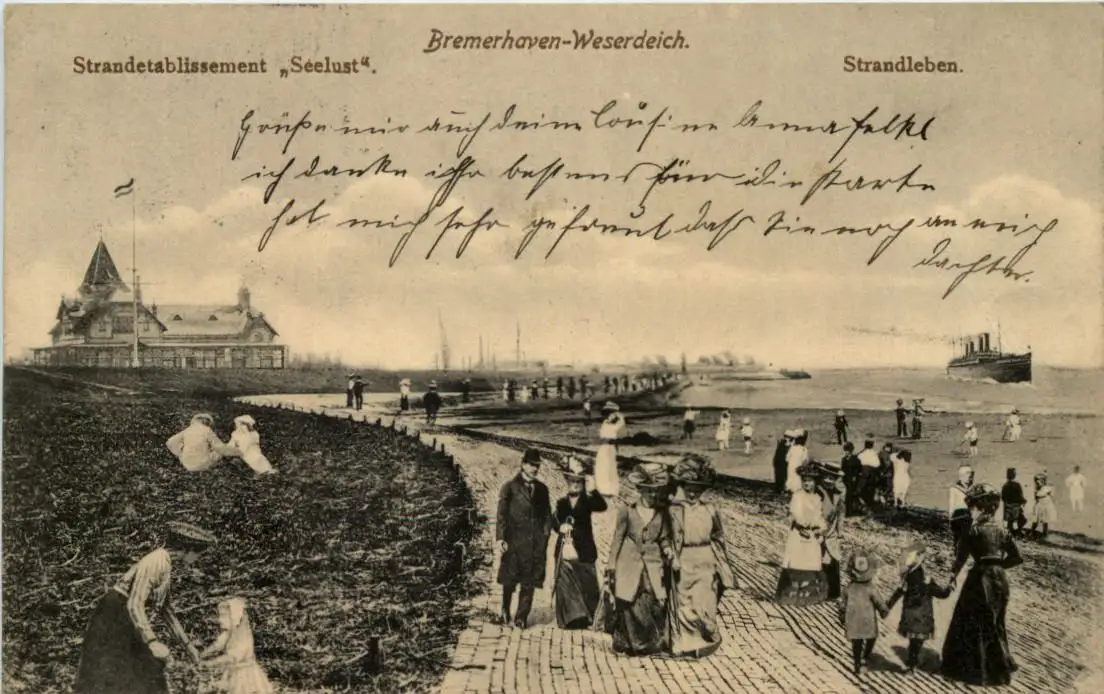 Bremerhaven-Weserdeich.
Strandetablissement „Seelust“.
Strandleben.
Grüße mir auch deine Cousine Anna
ich danke ihr bestens für die Karte
hat mich sehr gefreut daß Sie noch an mich
dachte.